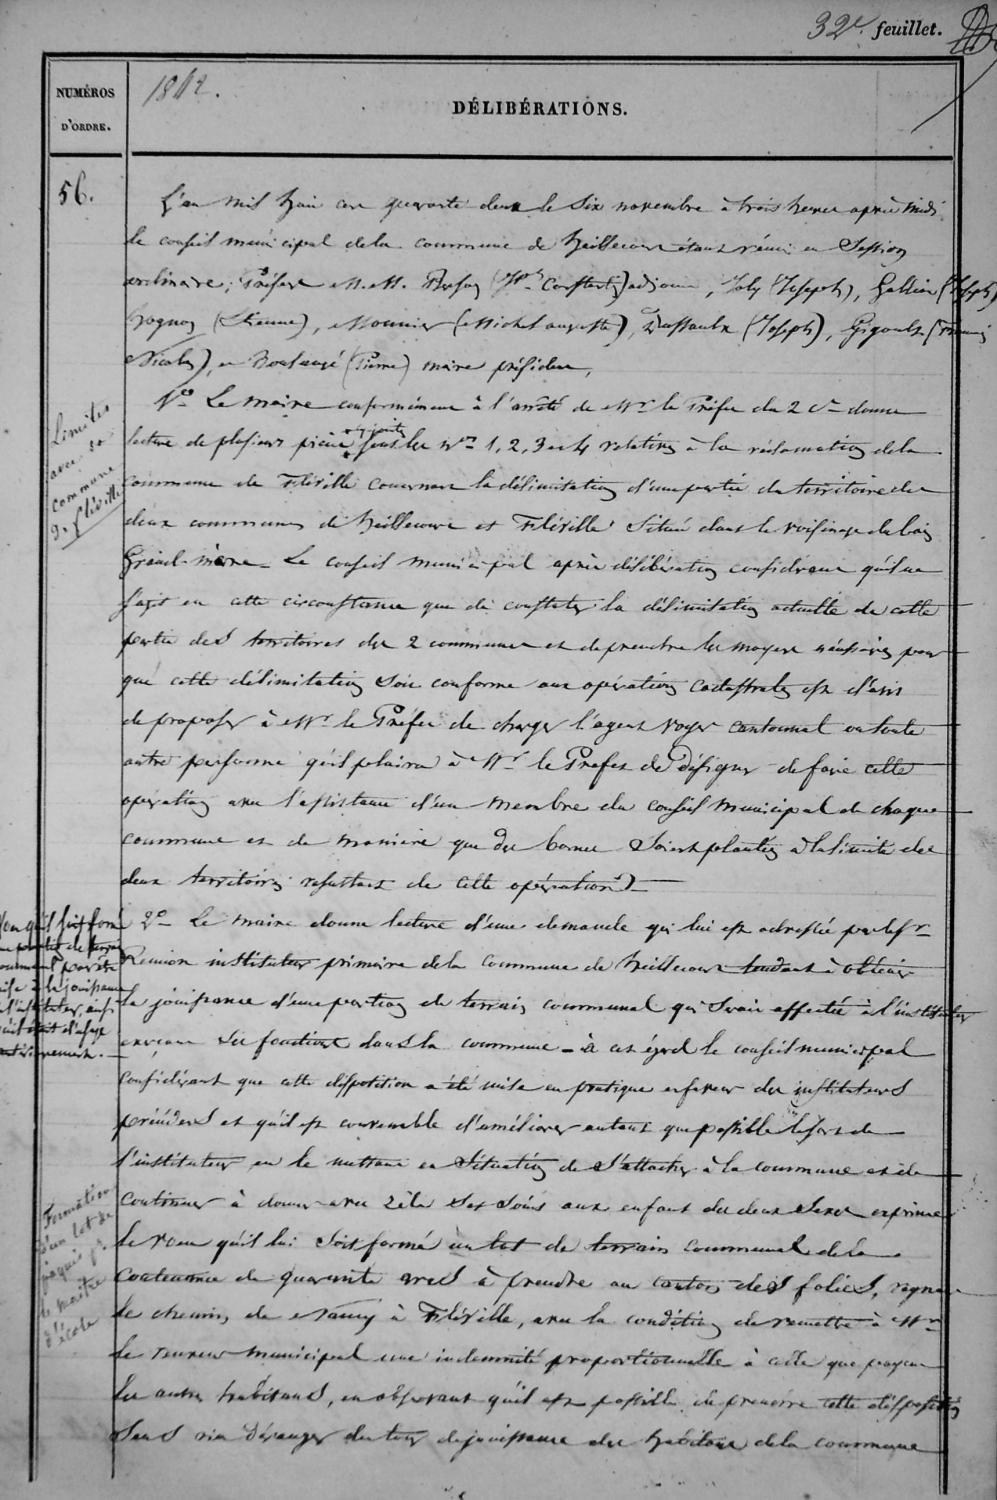 32e. feuillet.
NUMÉROS
D'ORDRE.
1842.
DÉLIBÉRATIONS.
56.
L'an mil huit cent quarante deux le six novembre à trois heures après midi
le conseil municipal de la commune de heillecourt étant réuni en Session
ordinaire; Présent M.M. (Constant) adjoint, Joly (Joseph), Gallier (Joseph)
(Etienne), Mounier (Michel auguste), (Joseph), Gigout (
Nicolas), et Boulangé (Pierre) maire président,
Limites
avec
commune
de fléville
1o. Le maire conformément à l'arrêté de Mr. le Préfet du 2 ct donne
lecture de plusieurs pièces sous les nos 1, 2, 3 et 4 relatives à la réclamation de la
commune de Fléville concernant la délimitation d'une partie du territoire des
deux communes de heillecourt et Fléville située dans le voisinage du bois
Grand-mère. Le conseil municipal après délibération considérant qu'il ne
s'agit en cette circonstance que de constater la délimitation actuelle de cette
partie des territoires des 2 communes et de prendre les moyens nécessaires pour
que cette délimitation soit conforme aux opérations cadastrales est d'avis
de proposer à Mr. le Préfet de charger l'agent voyer cantonnal ou toute
autre personne qu'il plaira à Mr. le Préfet de désigner de faire cette
opération avec l'assistance d'un membre du conseil municipal de chaque
commune et de manière que des bornes soient plantées à la limite des
deux territoires résultant de cette opération.
qu'il soit formé
portion de terrain
communal pour être
mise à la jouissance
l'instituteur, ainsi
qu'il était d'usage
antérieurement.
2o. Le maire donne lecture d'une demande qui lui est adressée par le Sr.
Reunion instituteur primaire de la commune de heillecourt tendant à obtenir
la jouissance d'une portion de terrain communal qui serait affectée à l'instituteur
exerçant ses fonctions dans la commune - à cet égard le conseil municipal
considérant que cette disposition a été mise en pratique en faveur des instituteurs
précédens et qu'il est convenable d'améliorer autant que possible le sort de
l'instituteur en le mettant en situation de s'attacher à la commune et de
Formation
d'un lot de
pr.
le maître
d'école
continuer à donner avec zèle ses soins aux enfans des deux sexes exprime
le voeu qu'il lui soit formé un lot de terrain communal de la
contenance de quarante ares à prendre au canton des folies,
le chemin de Nancy à Fléville, avec la condition de remettre à Mr.
le receveur municipal une indemnité proportionnelle à celle que payent
les autres habitans, en observant qu'il est possible de prendre cette disposition
sans rien déranger du tour de jouissance des habitans de la commune